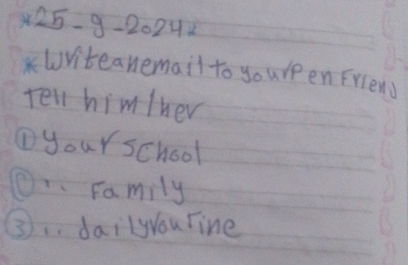 *25-9-2024*
*Writeanemail to yourpen Friend
Tell him/her
① your school
② ". Family
③ ". dailyroutine